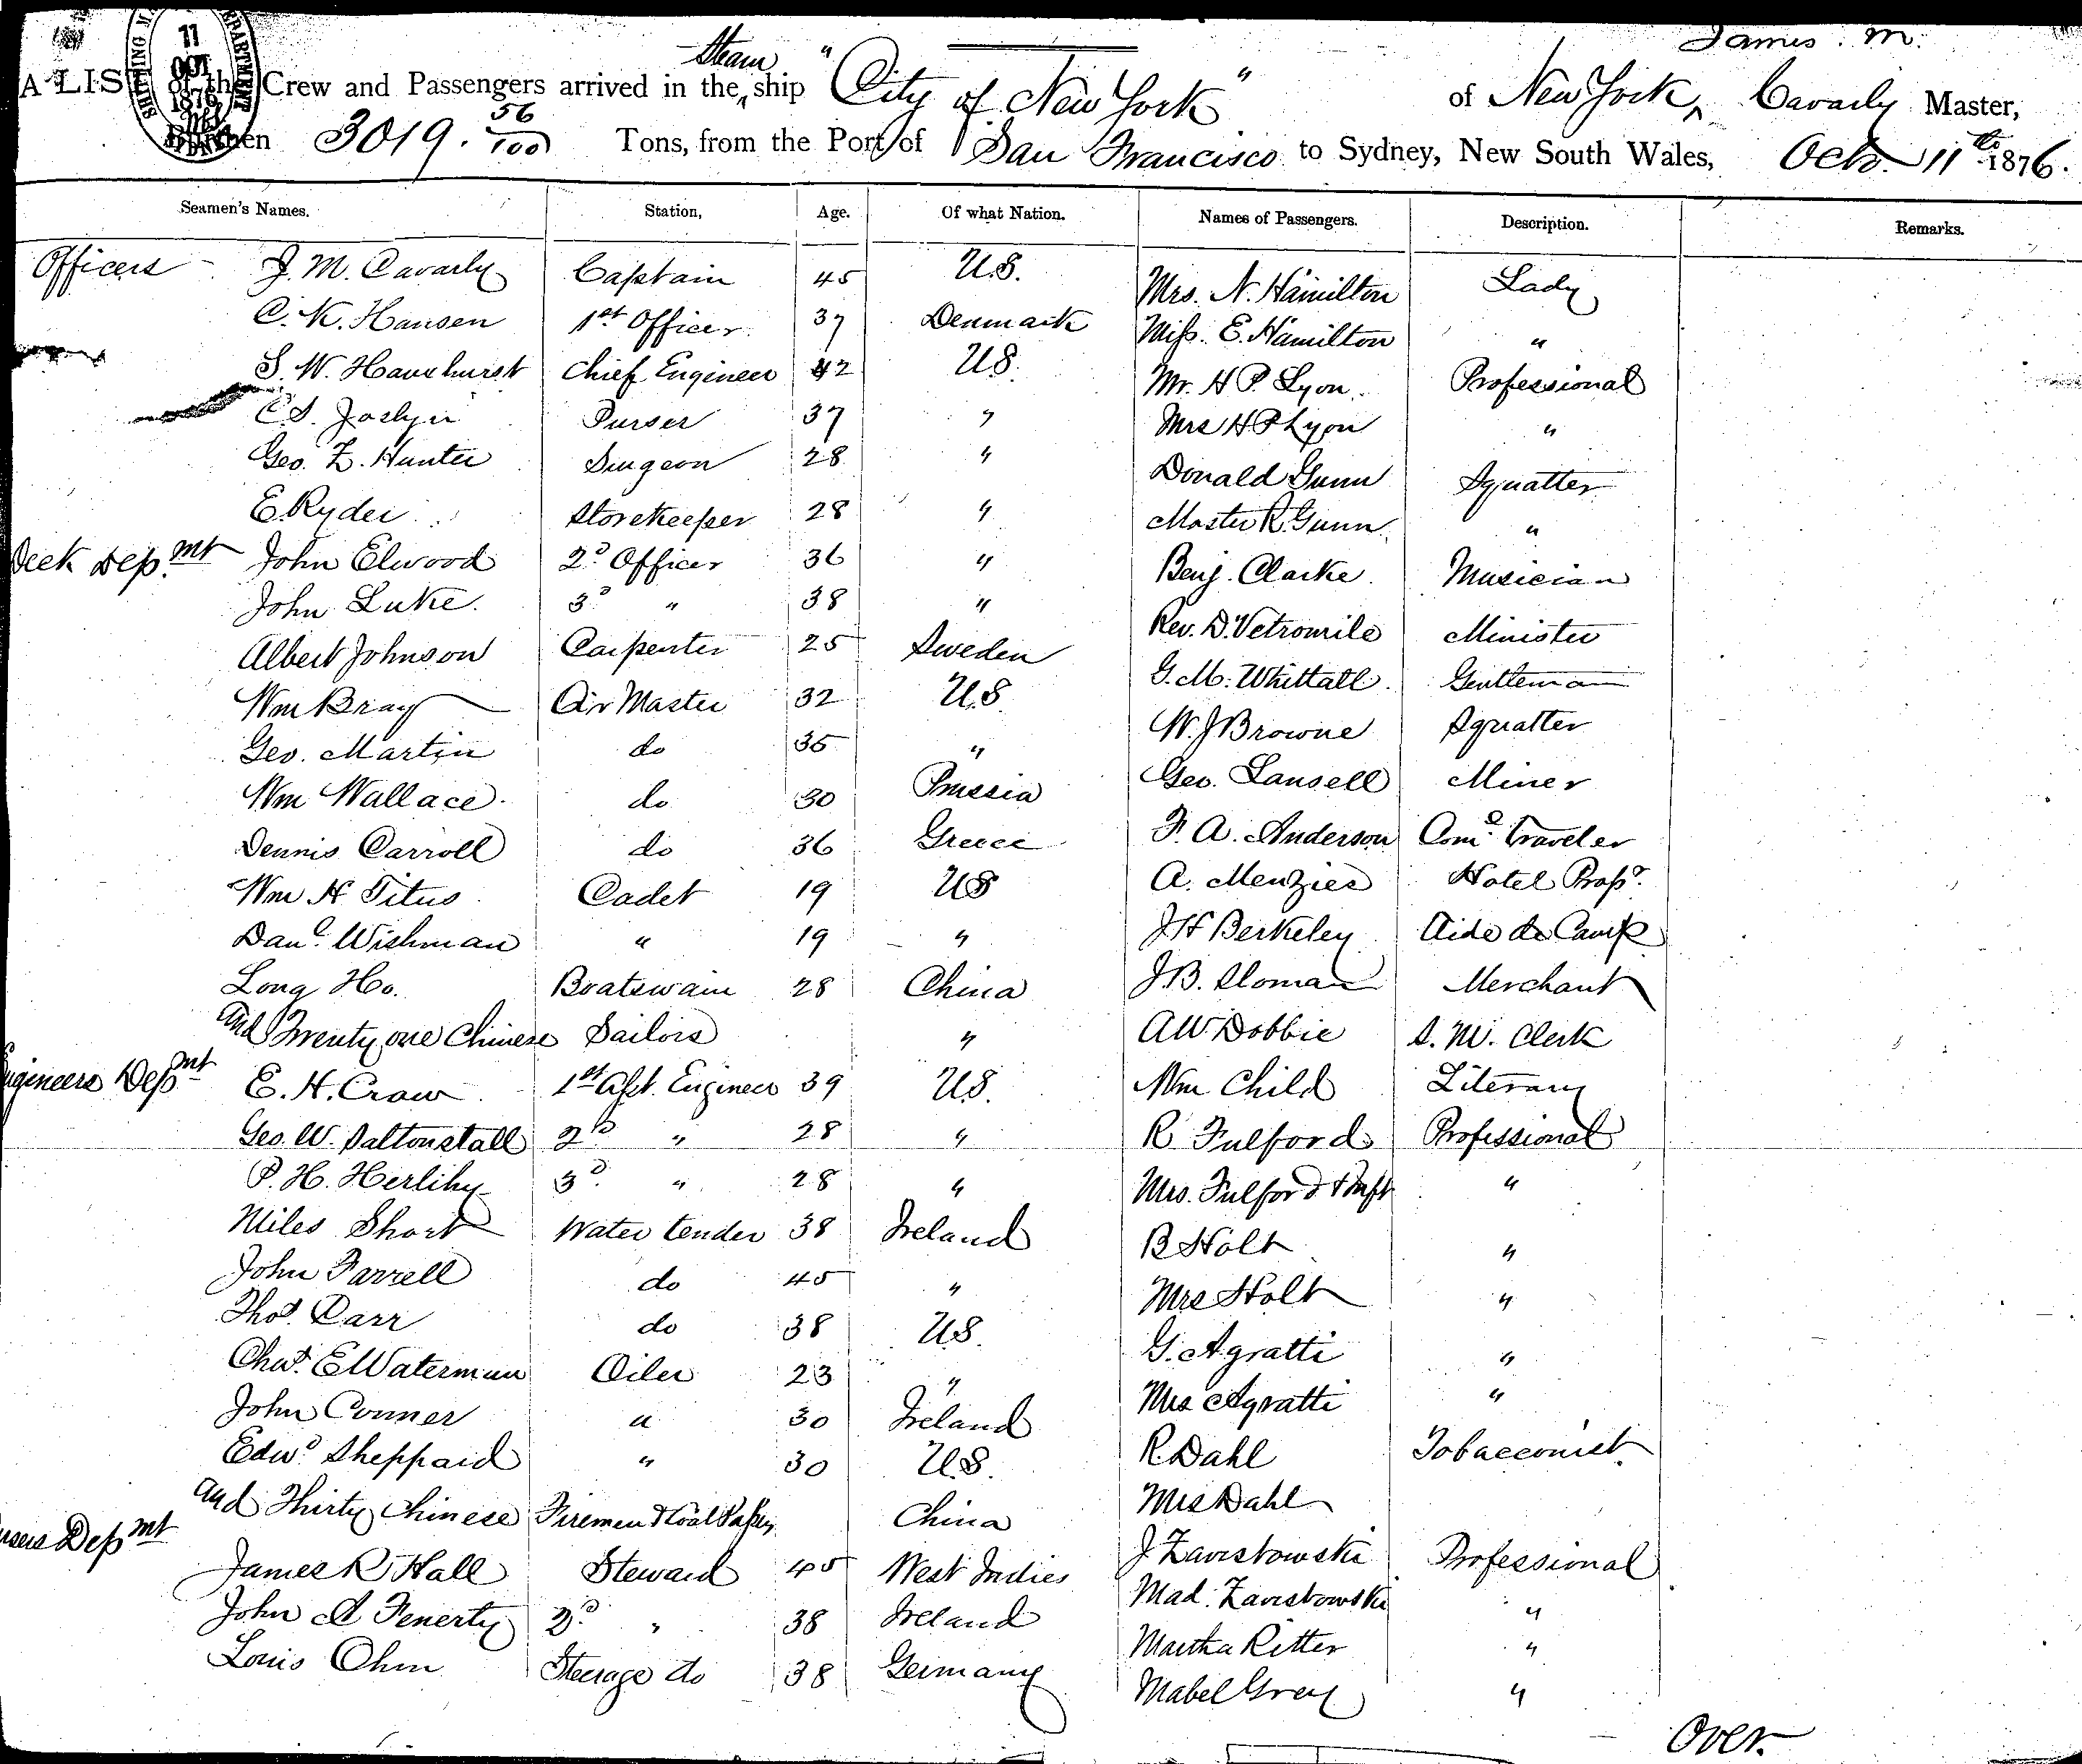 James. M.
A LIST of the Crew and Passengers arrived in the Steam ship "City of New York" of New York, Cavarly Master,
Burthen 3019. 56/100 Tons, from the Port of San Francisco to Sydney, New South Wales, Octo. 11th 1876.
SHIPPING MASTER'S DEPARTMENT 11 OCT 1876
Seamen's Names. Station, Age. Of what Nation. Names of Passengers. Description. Remarks.
Officers J. M. Cavarly Captain 45 U.S. Mrs. N. Hamilton Lady
C. K. Hansen 1st Officer 37 Denmark Miss. E. Hamilton "
S. W. Havehurst Chief Engineer 42 U.S. Mr. H P. Lyon Professional
C. S. Joslyn Purser 37 " Mrs H P Lyon "
Geo. Z. Hunter Surgeon 28 " Donald Gunn Squatter
E. Ryder Storekeeper 28 " Master R. Gunn "
Deck Dep.mt John Elwood 2d Officer 36 " Benj. Clarke Musician
John Luke 3d " 38 " Rev. D. Vetromile Minister
Albert Johnson Carpenter 25 Sweden G. M. Whittall Gentleman
Wm Bray Qr Master 32 U.S. W. J Browne Squatter
Geo. Martin do 35 " Geo. Lansell Miner
Wm Wallace do 30 Prussia F. A. Anderson Coml Traveler
Dennis Carroll do 36 Greece A. Menzies Hotel Propr.
Wm H Titus Cadet 19 US J H Berkeley Aide de Camp
Danl. Wishman " 19 " J. B. Sloman Merchant
Long Ho. Boatswain 28 China A W Dobbie S. M. Clerk
and Twenty one Chinese Sailors " Wm Child Literary
Engineers Depmt E. H. Craw 1st Asst. Engineer 39 U.S. R Fulford Professional
Geo. W. Saltonstall 2d " 28 " Mrs. Fulford & Inft "
P. H. Herlihy 3d " 28 " B Holt "
Miles Short Water tender 38 Ireland Mrs Holt "
John Farrell do 45 " G. Agratti "
Thos. Carr do 38 U.S. Mrs Agratti "
Chas. E Waterman Oiler 23 " R. Dahl Tobacconist
John Conner " 30 Ireland Mrs Dahl
Edwd Sheppard " 30 U.S. J Zavistowski Professional
and Thirty Chinese Firemen & Coal Passrs China Mad. Zavistowski "
Pursers Depmt James R Hall Steward 45 West Indies Martha Ritter "
John A Fenerty 2d " 38 Ireland Mabel Grey "
Louis Ohm Steerage do 38 Germany
Over.